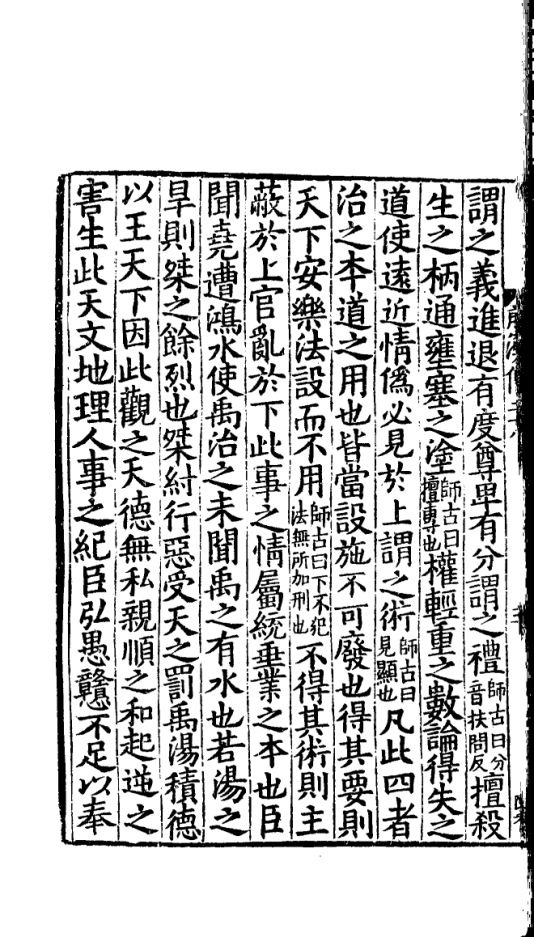 謂之義進退有度尊卑有分謂之禮師古曰分音扶問反擅殺
生之柄通壅塞之塗師古曰擅專也權輕重之數論得失之
道使遠近情僞必見於上謂之術師古曰見顯也凡此四者
治之本道之用也皆當設施不可廢也得其要則
天下安樂法設而不用師古曰下不犯法無所加刑也不得其術則主
蔽於上官亂於下此事之情屬統垂業之本也臣
聞堯遭鴻水使禹治之未聞禹之有水也若湯之
旱則桀之餘烈也桀紂行惡受天之罰禹湯積德
以王天下因此觀之天德無私親順之和起逆之
害生此天文地理人事之紀臣弘愚戇不足以奉